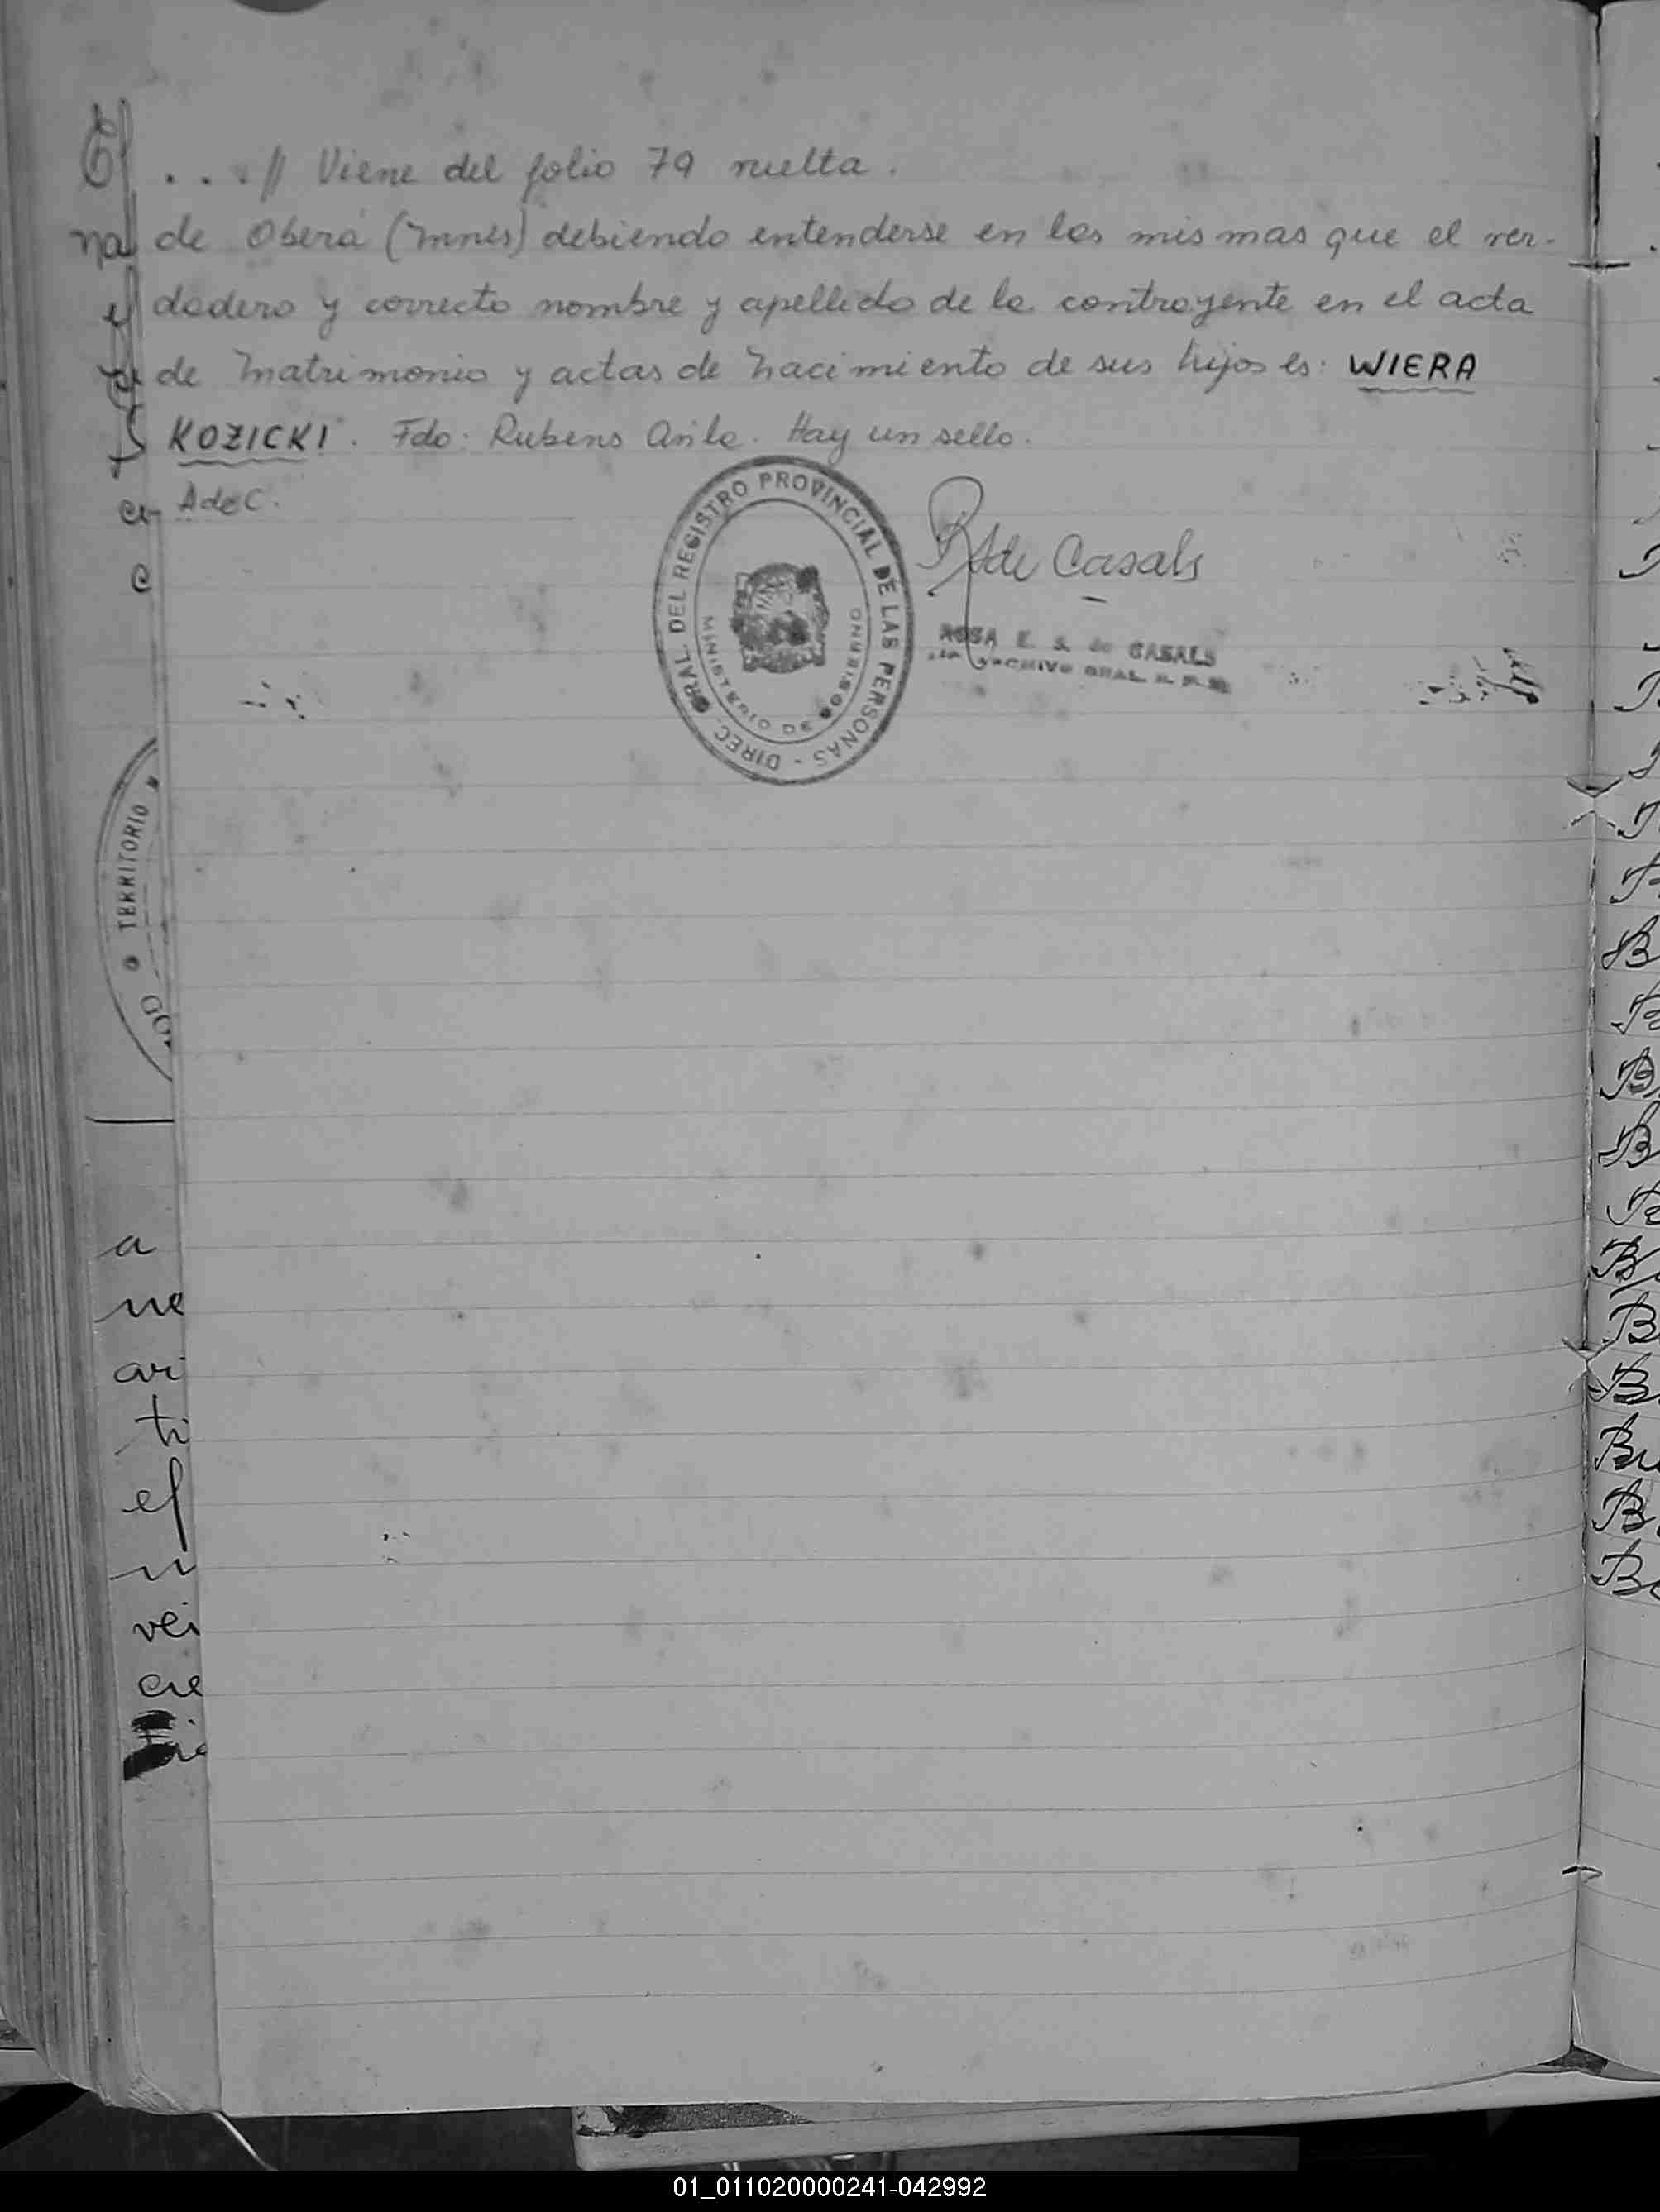 . . . // Viene del folio 79 vuelta.
de Oberá (Mnes) debiendo entenderse en las mismas que el ver-
dadero y correcto nombre y apellido de la contrayente en el acta
de Matrimonio y actas de Nacimiento de sus hijos es: WIERA
KOZICKI. Fdo: Rubens Avila. Hay un sello.
AdeC.
DIREC. GRAL. DEL REGISTRO PROVINCIAL DE LAS PERSONAS -
MINISTERIO DE GOBIERNO
de Casals
ROSA E. S. de CASALS
ARCHIVO GRAL. R. P.
TERRITORIO
GO
a
ne
ari
ti
el
vei
cre
B
B
B
B
B
Bu
B
01_011020000241-042992